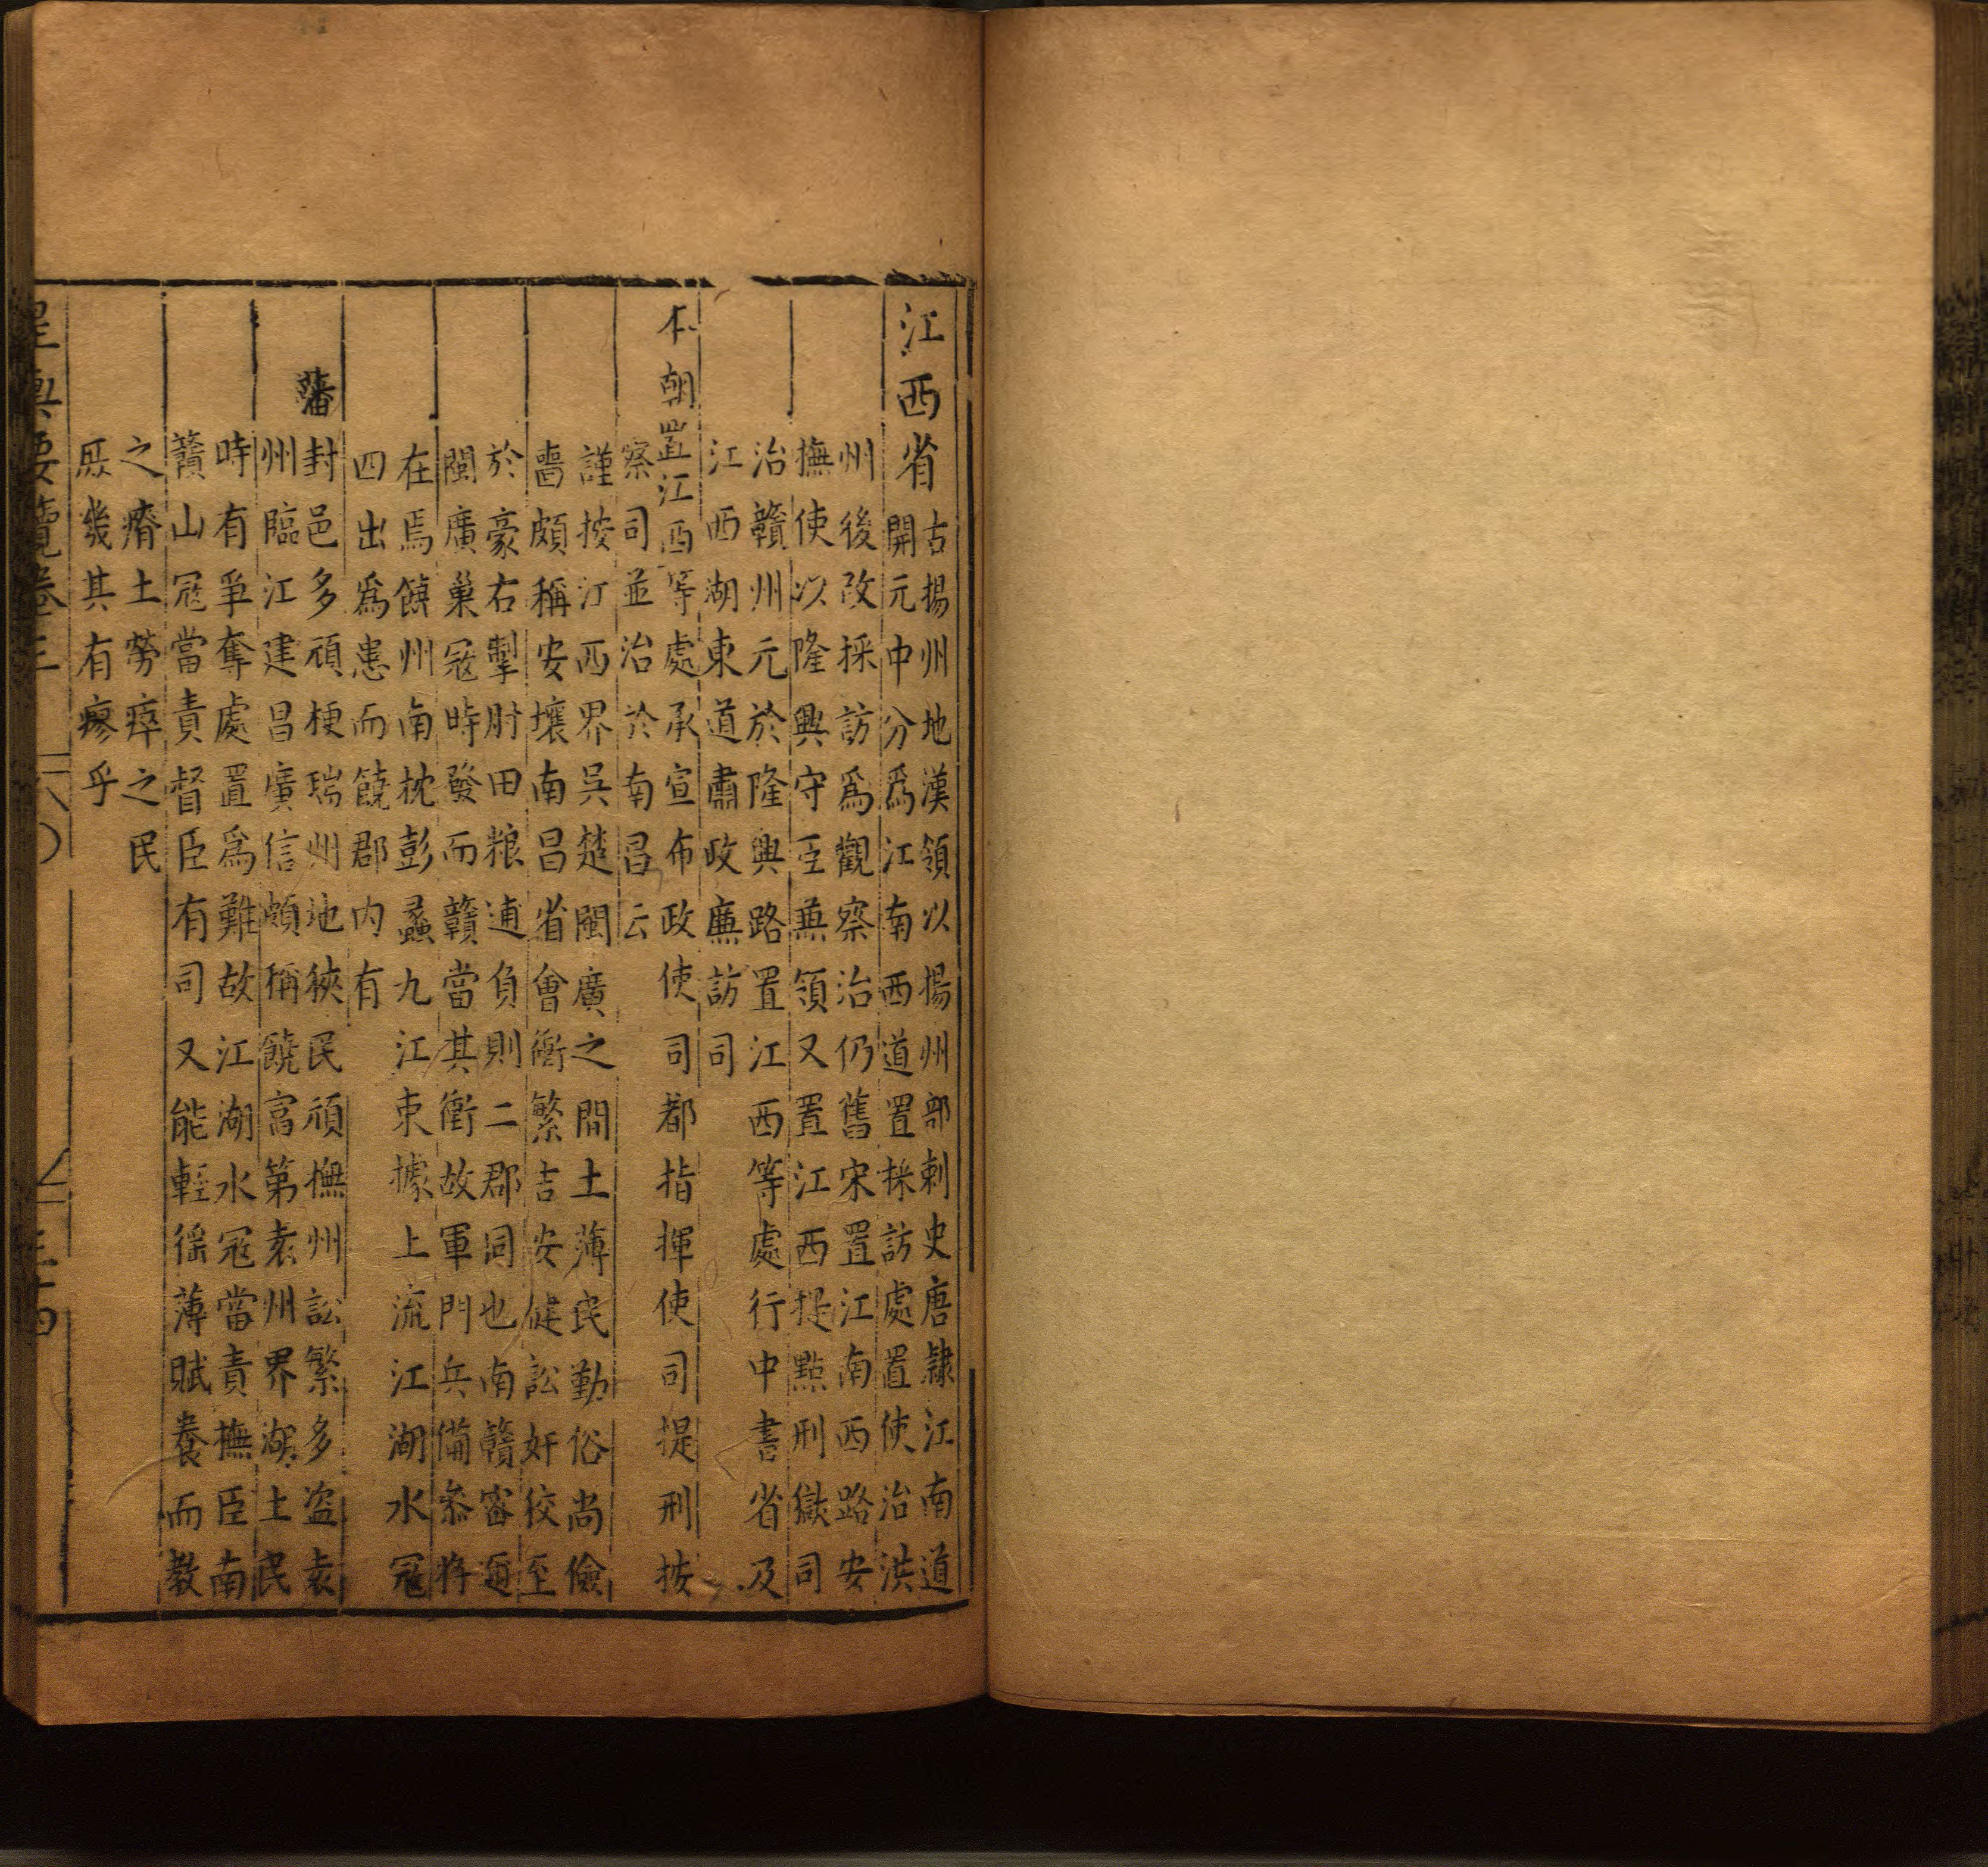 江西省
古揚州地漢領以揚州部刺史唐隸江南道
開元中分爲江南西道置採訪處置使治洪
州後改採訪爲觀察治仍舊宋置江南西路安
撫使以隆興守臣兼領又置江西提點刑獄司
治贛州元於隆興路置江西等處行中書省及
江西湖東道肅政廉訪司
本朝置江西等處承宣布政使司都指揮使司提刑按
察司並治於南昌云
謹按江西界吳楚閩廣之間土薄民勤俗尚儉
嗇頗稱安壤南昌省會衝繁吉安健訟奸狡至
於豪右掣肘田粮逋負則二郡同也南贛密邇
閩廣巢寇時發而贛當其衝故軍門兵備叅將
在焉饒州南枕彭蠡九江東據上流江湖水寇
四出爲患而饒郡内有
藩封邑多頑梗瑞州地狹民頑撫州訟繁多盗袁
州臨江建昌廣信頗稱饒富第袁州界湖土民
時有爭奪處置爲難故江湖水寇當責撫臣南
贛山寇當責督臣有司又能輕徭薄賦養而教
之瘠土勞瘁之民
庶幾其有瘳乎
輿要覽卷三